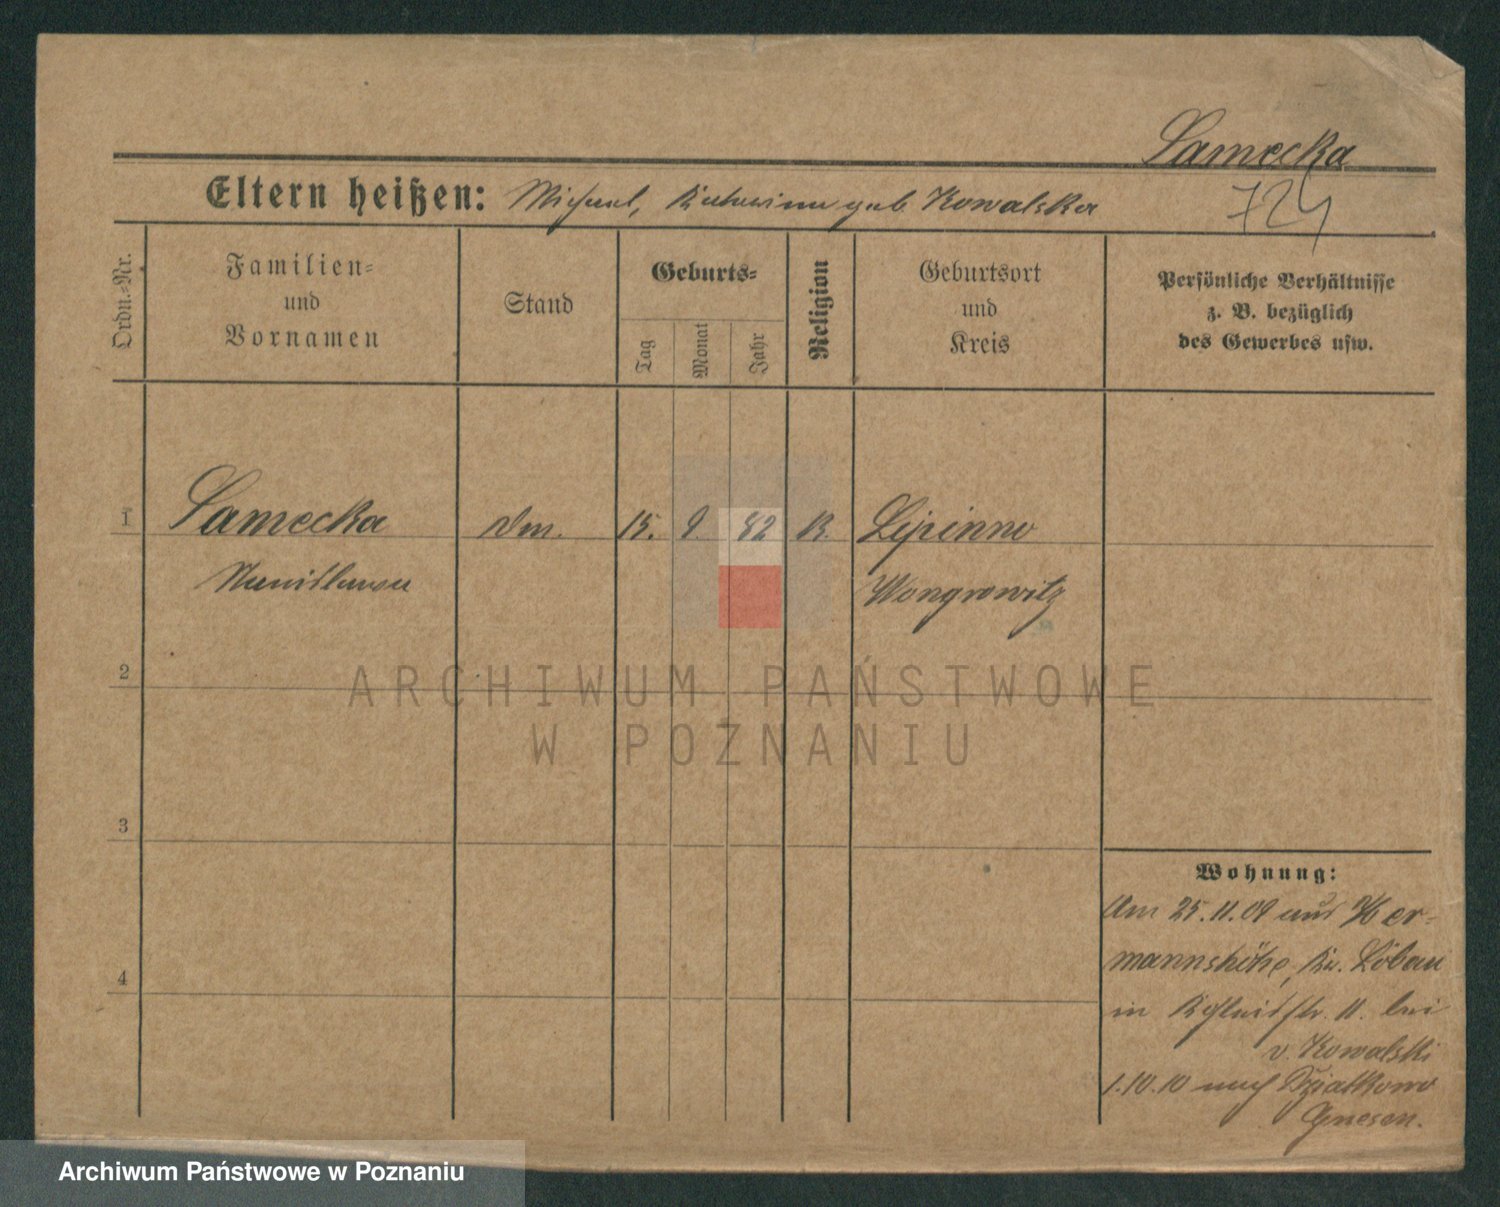 Samecka
724
Eltern heißen: Michael, geb. Kowalska
Ordn.-Nr.
Familien-
und
Vornamen
Stand
Geburts-
Tag
Monat
Jahr
Religion
Geburtsort
und
Kreis
Persönliche Verhältnisse
z. B. bezüglich
des Gewerbes usw.
1 Samecka 15. 9. 82 K. Lipinno
Stanislawa Wongrowitz
2
3
4
Wohnung:
Am 25.11.09 aus Her-
mannshöhe, Kr. Löbau
in 11. bei
v. Kowalski
1.10.10 nach Dziatkowo
Gnesen.
ARCHIWUM PAŃSTWOWE
W POZNANIU
Archiwum Państwowe w Poznaniu